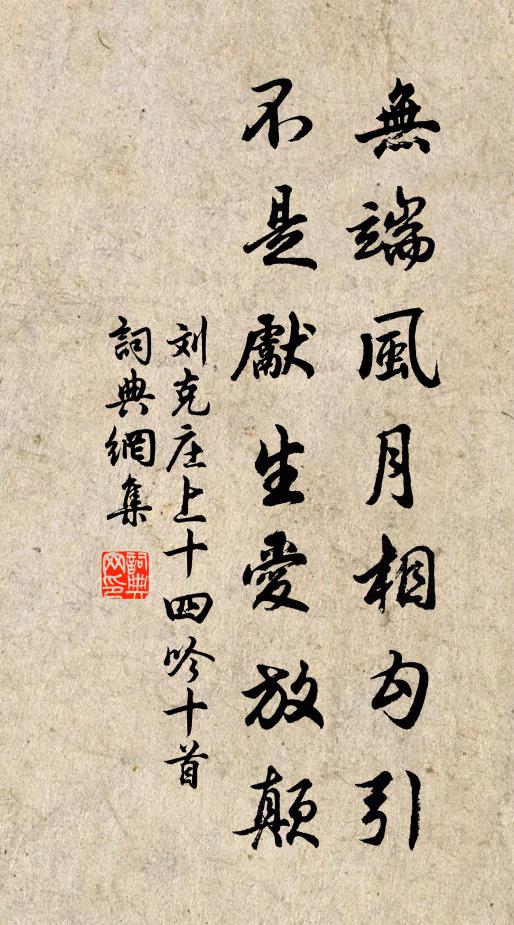 無端風月相勾引
不是獻生愛放顛
刘克庄上十四吟十首
詞典網集
詞典网印